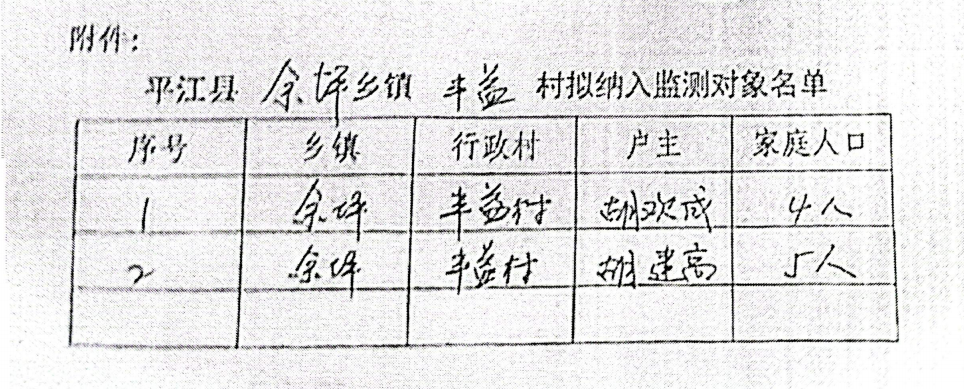 附件：
平江县 余坪乡镇 丰益 村拟纳入监测对象名单
序号 乡镇 行政村 户主 家庭人口
1 余坪 丰益村 胡欢成 4人
2 余坪 丰益村 胡建高 5人